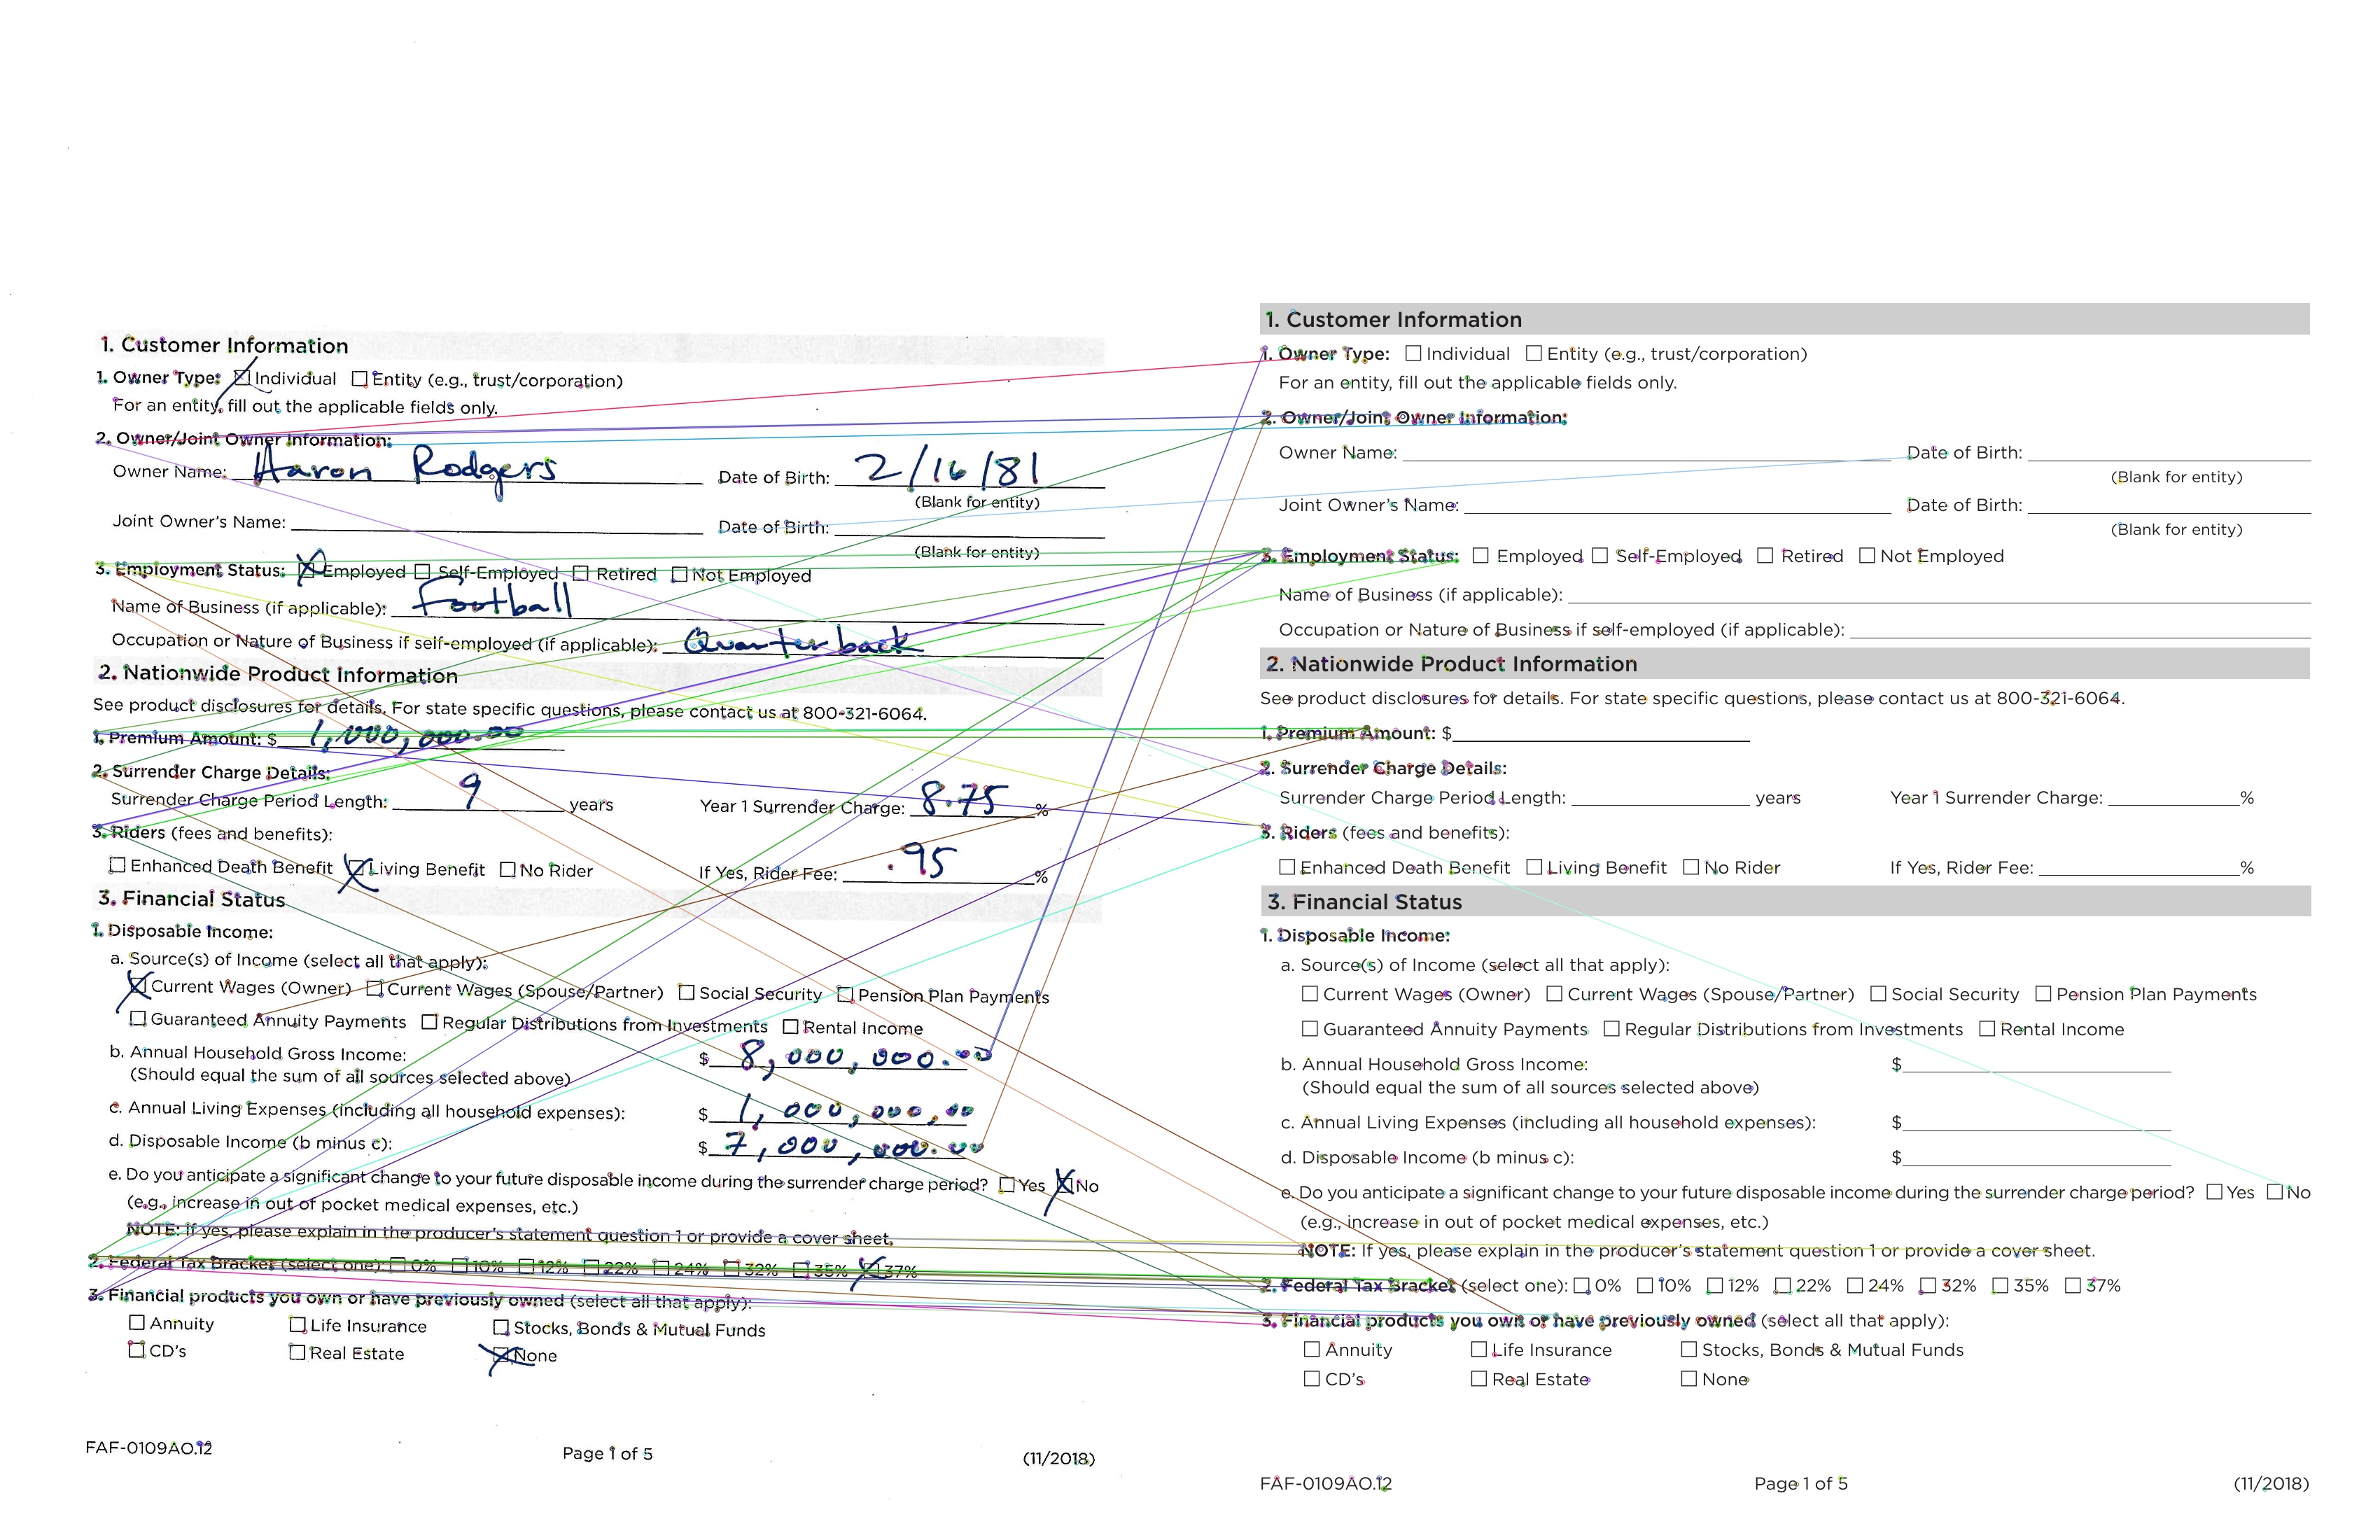 1. Customer Information
1. Owner Type: Individual Entity (e.g., trust/corporation)
For an entity, fill out the applicable fields only.
2. Owner/Joint Owner Information:
Owner Name: Aaron Rodgers Date of Birth: 2/16/81
(Blank for entity)
Joint Owner's Name: Date of Birth:
(Blank for entity)
3. Employment Status: Employed Self-Employed Retired Not Employed
Name of Business (if applicable): Football
Occupation or Nature of Business if self-employed (if applicable): Quarterback
2. Nationwide Product Information
See product disclosures for details. For state specific questions, please contact us at 800-321-6064.
1. Premium Amount: $ 1,000,000.00
2. Surrender Charge Details:
Surrender Charge Period Length: 9 years Year 1 Surrender Charge: 8.75 %
3. Riders (fees and benefits):
Enhanced Death Benefit Living Benefit No Rider If Yes, Rider Fee: .95 %
3. Financial Status
1. Disposable Income:
a. Source(s) of Income (select all that apply):
Current Wages (Owner) Current Wages (Spouse/Partner) Social Security Pension Plan Payments
Guaranteed Annuity Payments Regular Distributions from Investments Rental Income
b. Annual Household Gross Income: $ 8,000,000.00
(Should equal the sum of all sources selected above)
c. Annual Living Expenses (including all household expenses): $ 1,000,000.00
d. Disposable Income (b minus c): $ 7,000,000.00
e. Do you anticipate a significant change to your future disposable income during the surrender charge period? Yes No
(e.g., increase in out of pocket medical expenses, etc.)
NOTE: If yes, please explain in the producer's statement question 1 or provide a cover sheet.
2. Federal Tax Bracket (select one): 0% 10% 12% 22% 24% 32% 35% 37%
3. Financial products you own or have previously owned (select all that apply):
Annuity Life Insurance Stocks, Bonds & Mutual Funds
CD's Real Estate None
FAF-0109AO.12 Page 1 of 5 (11/2018)
1. Customer Information
1. Owner Type: Individual Entity (e.g., trust/corporation)
For an entity, fill out the applicable fields only.
2. Owner/Joint Owner Information:
Owner Name: Date of Birth:
(Blank for entity)
Joint Owner's Name: Date of Birth:
(Blank for entity)
3. Employment Status: Employed Self-Employed Retired Not Employed
Name of Business (if applicable):
Occupation or Nature of Business if self-employed (if applicable):
2. Nationwide Product Information
See product disclosures for details. For state specific questions, please contact us at 800-321-6064.
1. Premium Amount: $
2. Surrender Charge Details:
Surrender Charge Period Length: years Year 1 Surrender Charge: %
3. Riders (fees and benefits):
Enhanced Death Benefit Living Benefit No Rider If Yes, Rider Fee: %
3. Financial Status
1. Disposable Income:
a. Source(s) of Income (select all that apply):
Current Wages (Owner) Current Wages (Spouse/Partner) Social Security Pension Plan Payments
Guaranteed Annuity Payments Regular Distributions from Investments Rental Income
b. Annual Household Gross Income: $
(Should equal the sum of all sources selected above)
c. Annual Living Expenses (including all household expenses): $
d. Disposable Income (b minus c): $
e. Do you anticipate a significant change to your future disposable income during the surrender charge period? Yes No
(e.g., increase in out of pocket medical expenses, etc.)
NOTE: If yes, please explain in the producer's statement question 1 or provide a cover sheet.
2. Federal Tax Bracket (select one): 0% 10% 12% 22% 24% 32% 35% 37%
3. Financial products you own or have previously owned (select all that apply):
Annuity Life Insurance Stocks, Bonds & Mutual Funds
CD's Real Estate None
FAF-0109AO.12 Page 1 of 5 (11/2018)